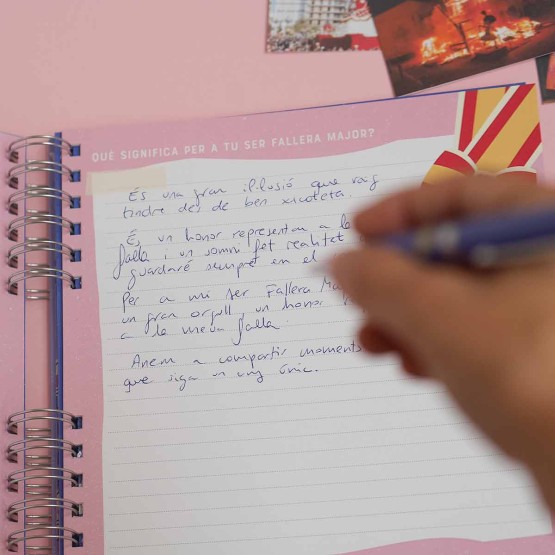 QUÈ SIGNIFICA PER A TU SER FALLERA MAJOR?
És una gran il·lusió que vaig
tindre des de ben xicoteta.
És un honor representar a la
falla i un somni fet realitat
guardaré sempre en el
Per a mi ser Fallera Ma
un gran orgull, un honor
a la meua falla
Anem a compartir moments
que siga un any únic.